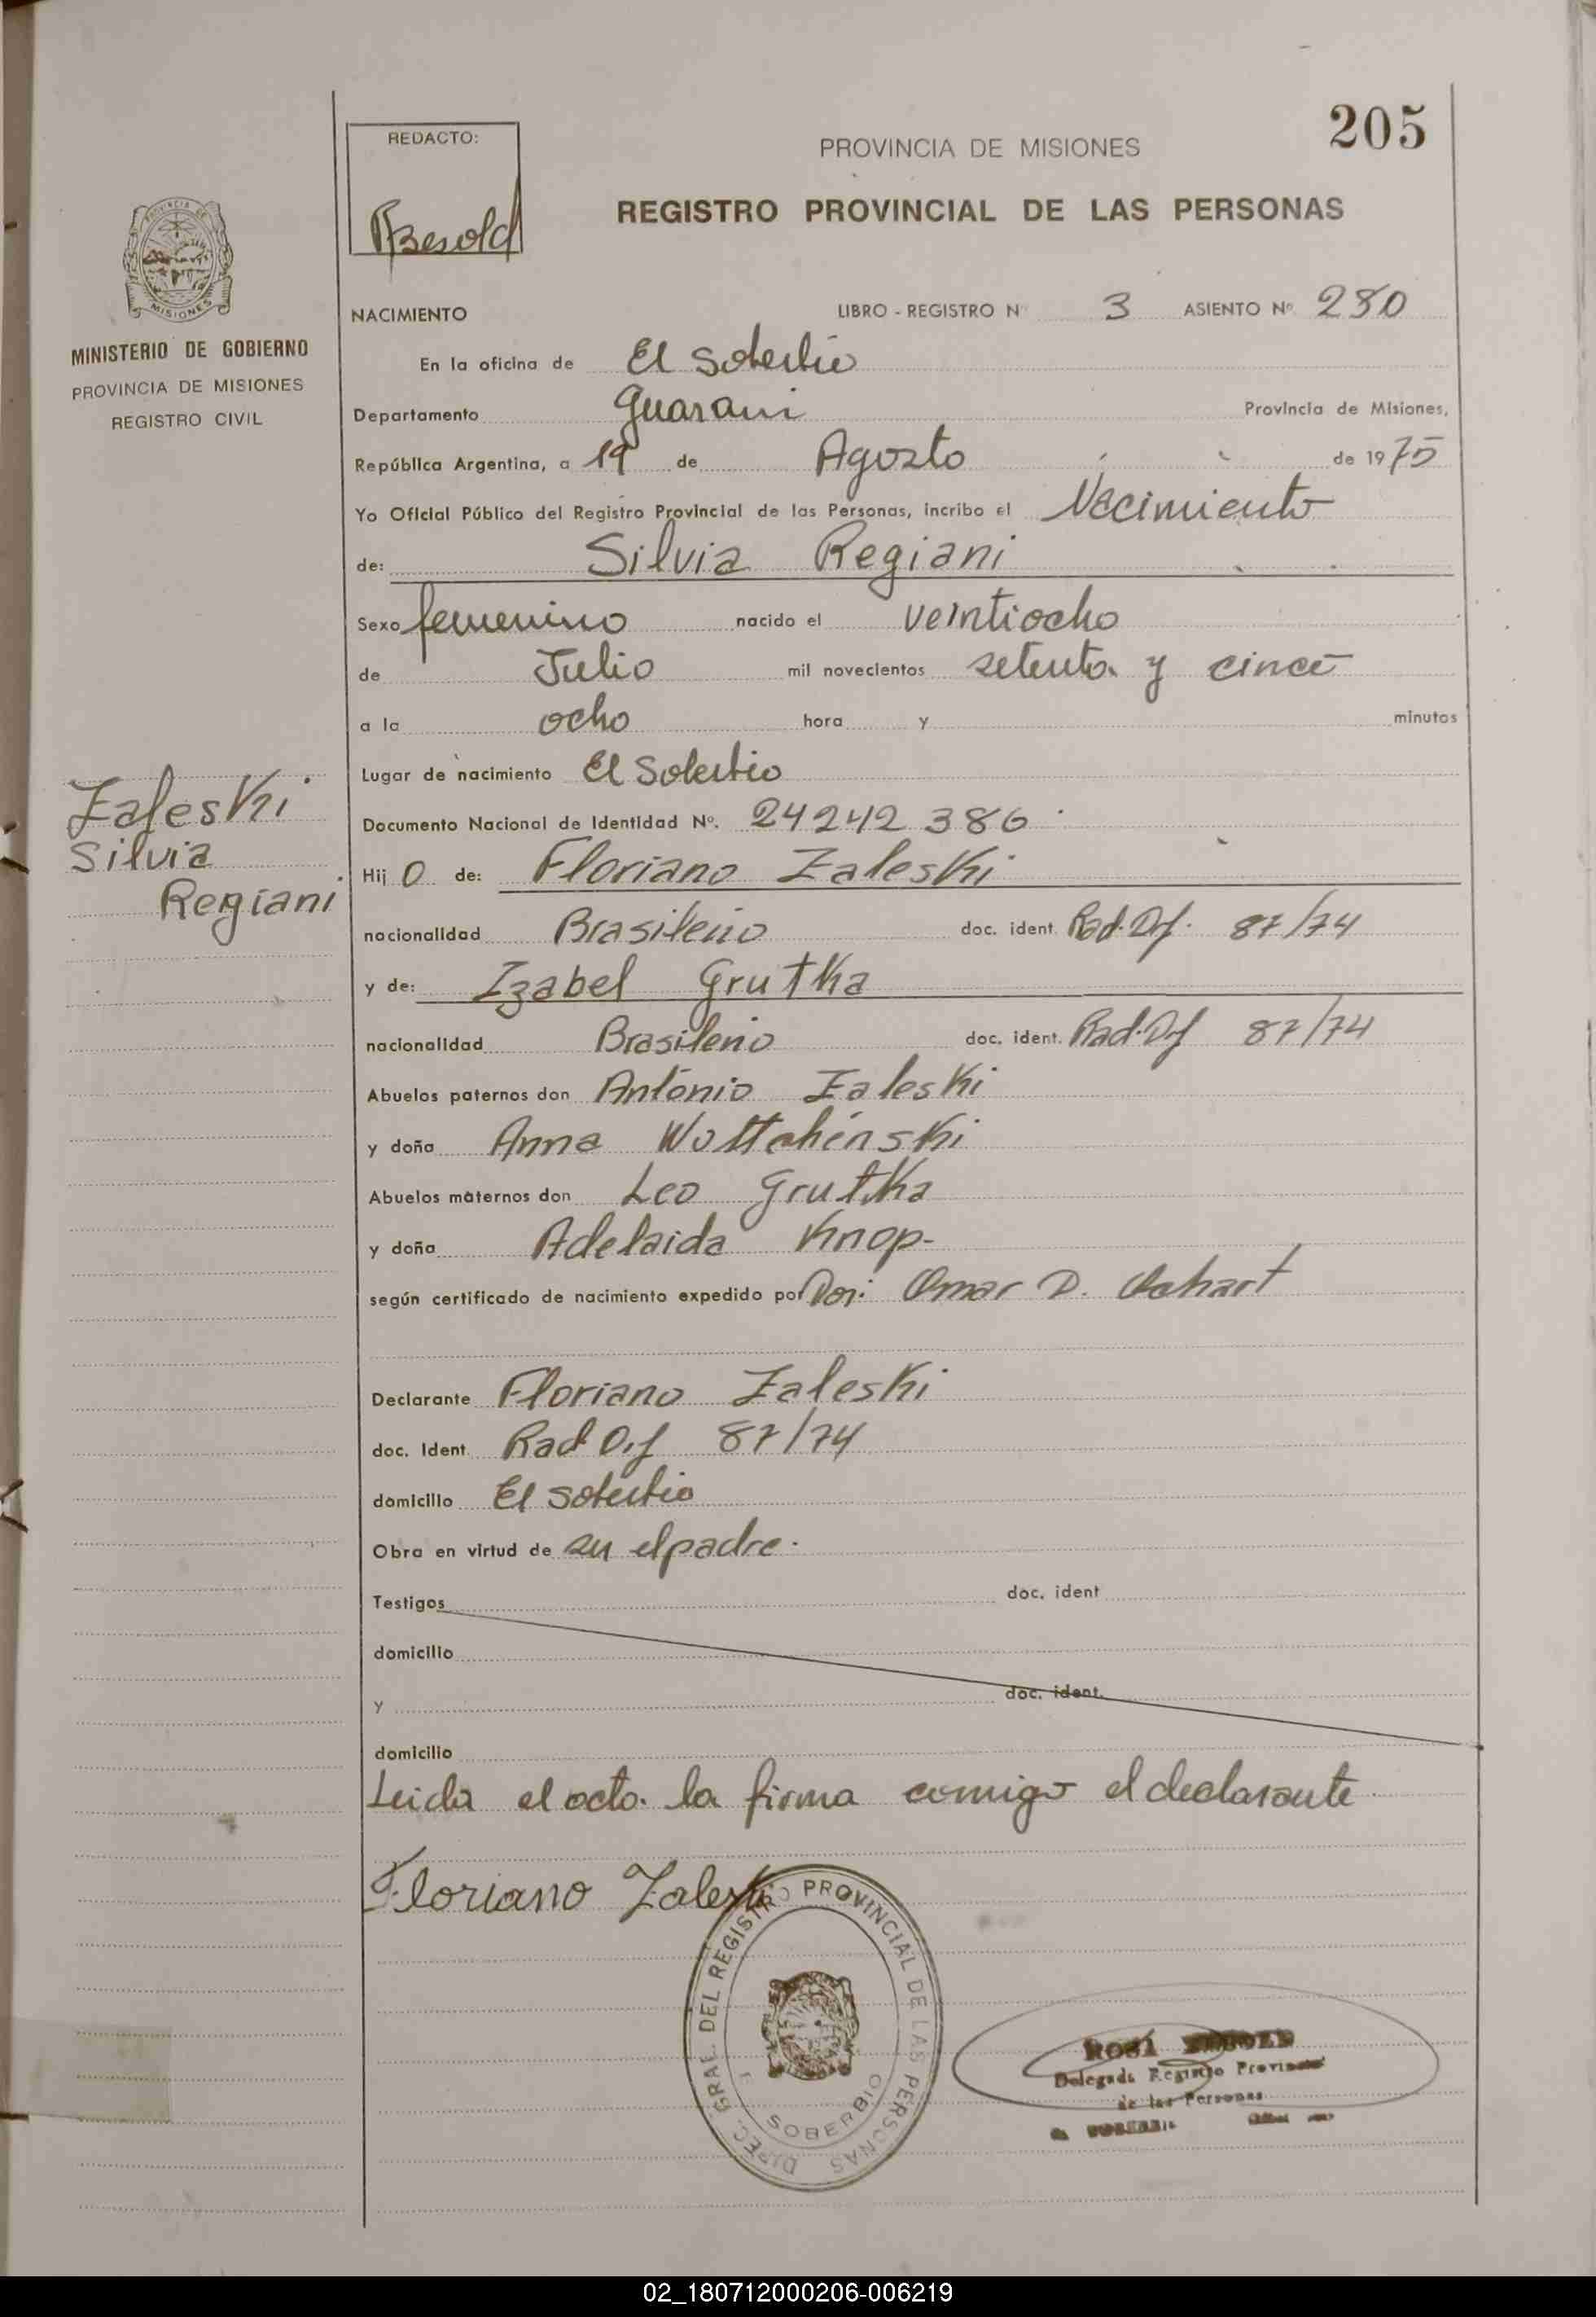 205
REDACTO:
Besold
PROVINCIA DE MISIONES
REGISTRO PROVINCIAL DE LAS PERSONAS
MISIONES
MINISTERIO DE GOBIERNO
PROVINCIA DE MISIONES
REGISTRO CIVIL
NACIMIENTO LIBRO - REGISTRO N 3 ASIENTO Nº 280
En la oficina de El Soberbio
Departamento Guarani Provincia de Misiones,
República Argentina, a 19 de Agosto de 1975
Yo Oficial Público del Registro Provincial de las Personas, incribo el Nacimiento
de: Silvia Regiani
Sexo femenino nacido el veintiocho
de Julio mil novecientos setenta y cinco
a la ocho hora y minutos
Lugar de nacimiento El Soberbio
Zaleski
Silvia
Regiani
Documento Nacional de Identidad Nº. 24242386
Hij o de: Floriano Zaleski
nacionalidad Brasileño doc. ident. Rad. Def. 87/74
y de: Izabel Grutka
nacionalidad Brasileño doc. ident. Rad. Def 87/74
Abuelos paternos don António Zaleski
y doña Anna
Abuelos maternos don Leo Grutka
y doña Adelaida Knop-
según certificado de nacimiento expedido por Dor: Omar D.
Declarante Floriano Zaleski
doc. Ident. Rad 87/74
domicilio El Soberbio
Obra en virtud de su el padre.
Testigos doc. ident
domicilio
y doc. ident.
domicilio
Leida el acta la firma comigo el declarante
Floriano Zaleski
DIREC. GRAL. DEL REGISTRO PROVINCIAL DE LAS PERSONAS
SOBERBIO
ROSA
Delegada Registro Provincial
de las Personas
02_180712000206-006219